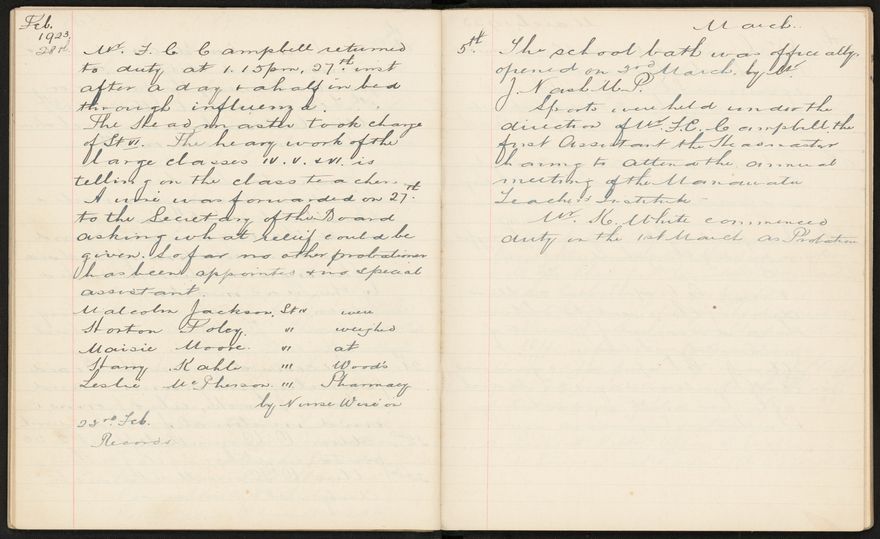 Feb.
1923
28th. Mr. F. C. Campbell returned
to duty at 1.15pm, 27th inst
after a day & a half in bed
through influenza.
The Headmaster took charge
of St VI. The heavy work of the
large classes IV. V. & VI. is
telling on the class teacher.
A wire was forwarded on 27th
to the Secretary of the Board
asking what relief could be
given. So far no other probationer
has been appointed & no special
assistant.
Malcolm Jackson, St IV were
Horton Foley. VI weighed
Maisie Moore. VI at
Harry Kahle III Wood's
Leslie McPherson. III Pharmacy
by Nurse on
22nd Feb.
Records
March.
5th. The school bath was officially
opened on 2nd March. by Mr.
J. Nash M.P.
Sports were held under the
direction of Mr. F.C. Campbell the
first Assistant the Headmaster
having to attend the annual
meeting of the Manawatu
Teachers Institute -
Mr. K. White commenced
duty on the 1st March as Probation